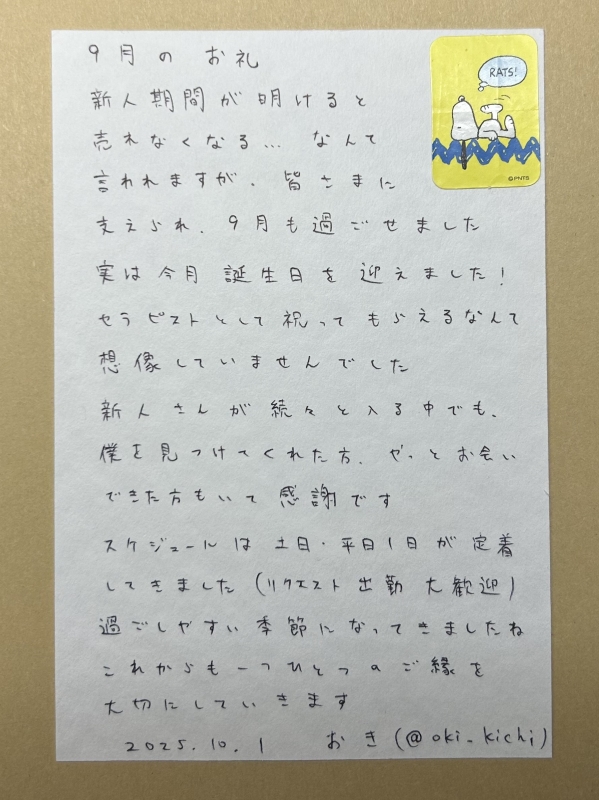 9月の お礼
RATS!
新人期間が明けると
売れなくなる… なんて
言われますが、皆さまに
©PNTS
支えられ、9月も過ごせました
実は今月 誕生日を 迎えました!
セラピストとして祝ってもらえるなんて
想像していませんでした
新人さんが 続々と入る中でも、
僕を見つけてくれた方、やっとお会い
できた方もいて 感謝です
スケジュールは 土日・平日1日が 定着
してきました (リクエスト出勤 大歓迎)
過ごしやすい季節になってきましたね
これからも一つひとつのご縁を
大切にしていきます
2025.10.1 おき (@oki_kichi)